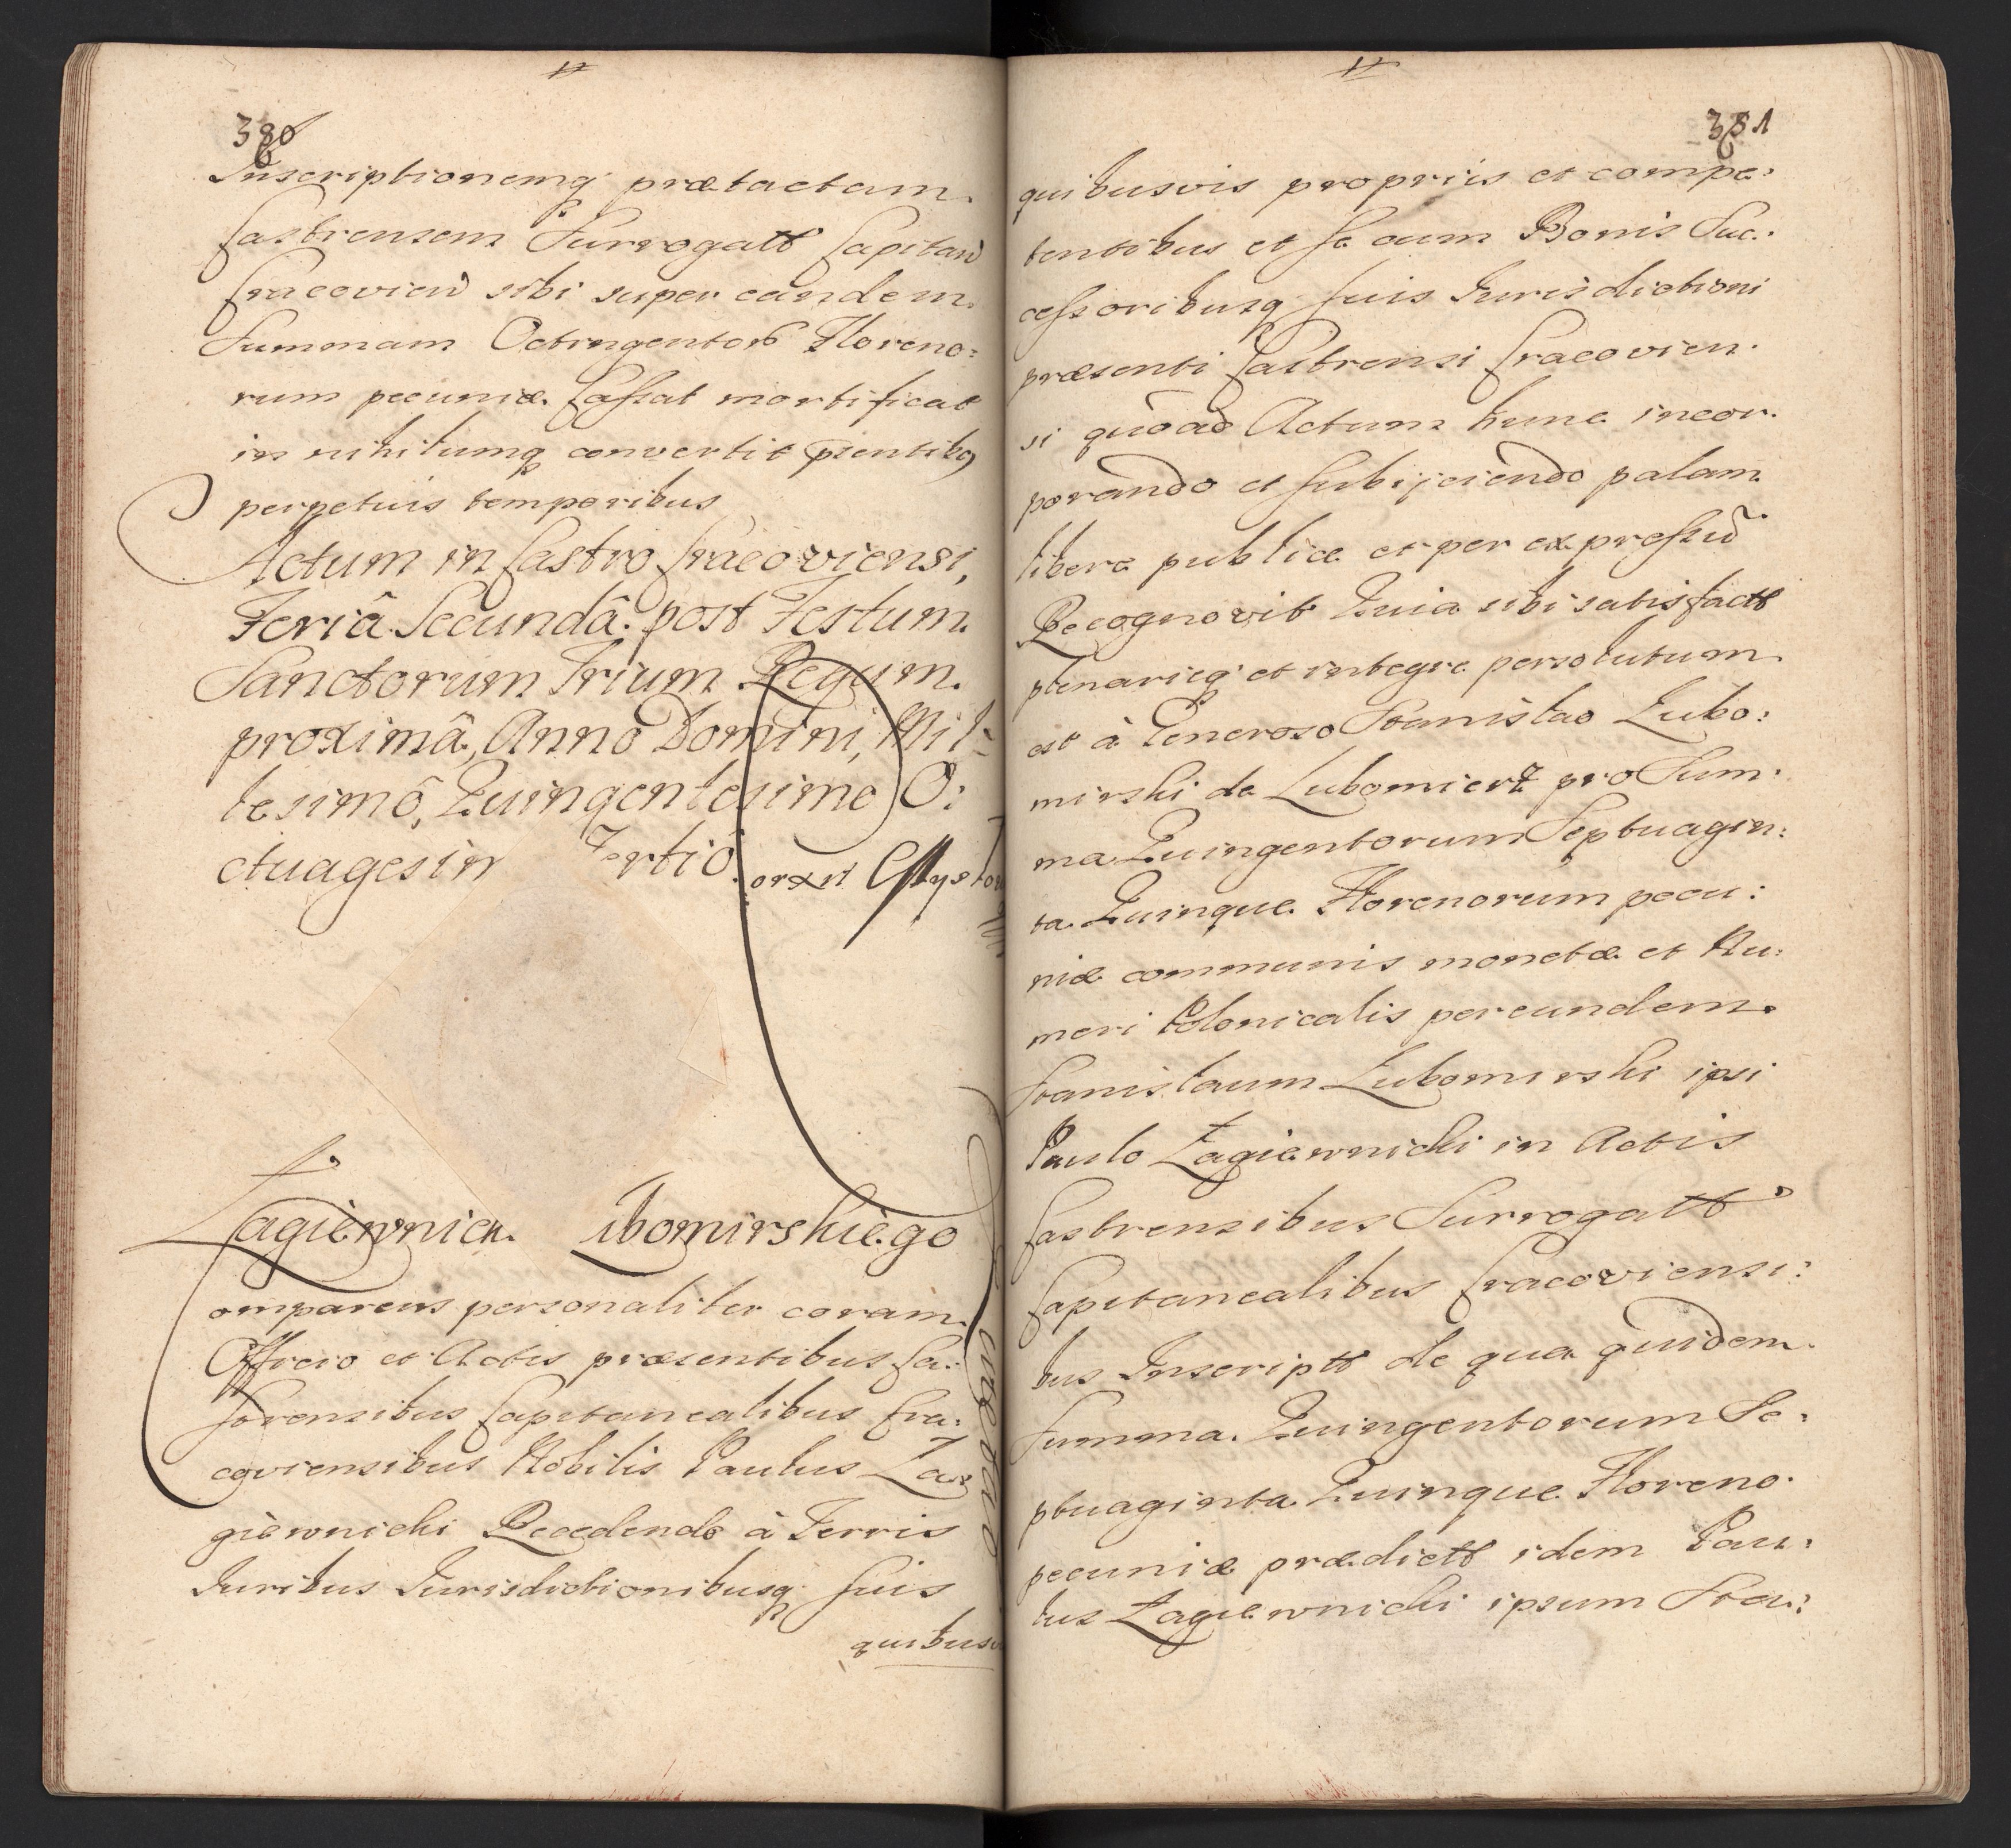 380
Inscriptionemq prætactam
Castrensem Surrogatt Capitan
Cracovien sibi super eandem
Summam Octingentor Floreno:
rum pecuniæ Cassat mortificat
in nihilumq convertit pntibq
perpetuis temporibus
Actum in Castro Cracoviensi,
Feriâ Secundâ post Festum
Sanctorum Trium Regum
proximâ, Anno Domini, Mil-
lesimô, Quingentesimo O:
ctuagesim Tertiô
Łagiewnick Lubomirskiègo
Comparens personaliter coram
Officio et Actis præsentibus Ca:
strensibus Capitanealibus Cra:
coviensibus Nobilis Paulus Ła:
giewnicki Recedendo à Terris
Iuribus Iurisdictionibusq suis
quibus
381
quibusvis propriis et compe:
tentibus et se cum Bonis Suc:
cessoribusq suis Iurisdictioni
præsenti Castrensi Cracovien:
si quoad Actum hunc incor:
porando et subijciendo palam
libere publice et per expressu
Recognovit Quia sibi satisfactt
plenarieq et integre persolutum
est à Generoso Stanislao Lubo:
mirski de Lubomierz pro Sum:
ma Quingentorum Septuagin:
ta Quinque Florenorum pecu:
niæ communis monetæ et Nu:
meri Polonicalis per eundem
Stanislaum Lubomirski ipsi
Paulo Łagiewnicki in Actis
Castrensibus Surrogatt
Capitanealibus Cracoviensi:
bus Inscriptt de qua quidem
Summa Quingentorum Se:
ptuaginta Quinque Floreno:
pecuniæ prædictt idem Pau:
lus Łagiewnicki ipsum Sta: